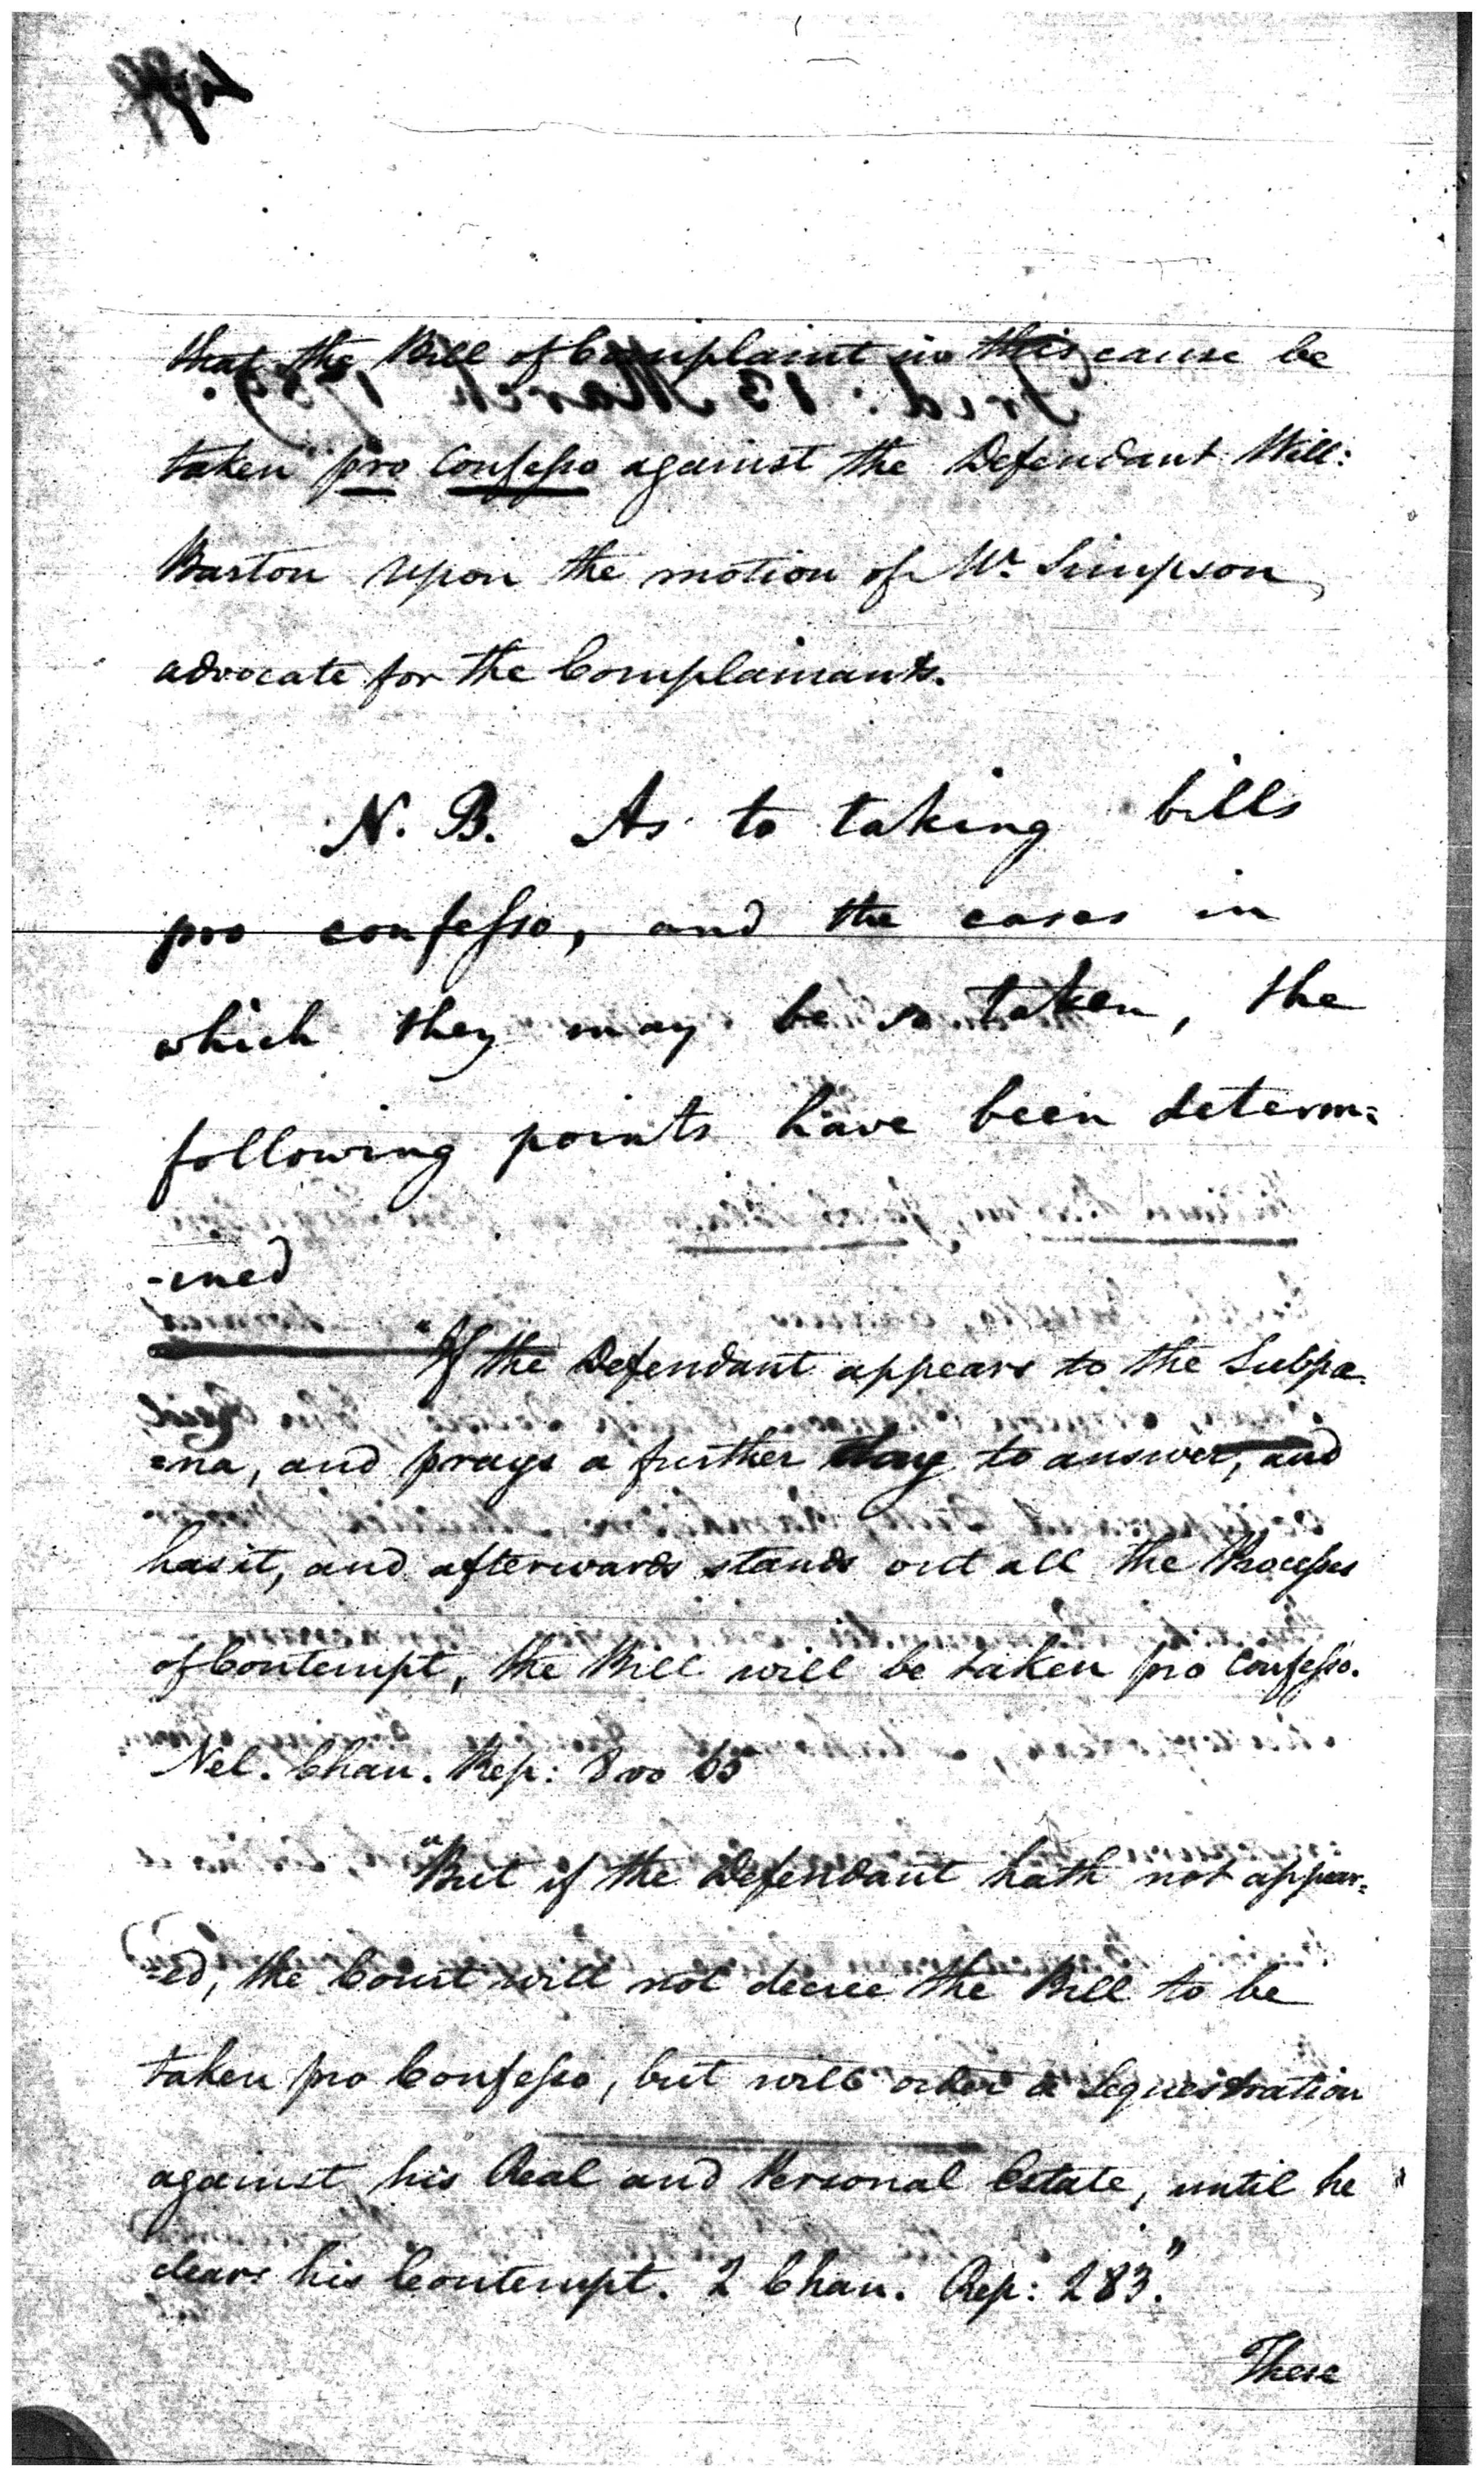 that the Bill of Complaint in this cause be
taken pro Confesso against the Defendant Will:
Barton upon the motion of Mr. Simpson,
advocate for the Complainants.
N. B. As to taking bills
pro confesso, and the cases in
which they may be so taken, the
following points have been determ=
-ined
"If the Defendant appears to the Subpæ
=na, and prays a further day to answer, and
has it, and afterwards stands out all the Processes
of Contempt, the Bill will be taken pro Confesso.
Nel. Chan. Rep: 8vo 65
"But if the Defendant hath not appear=
=ed, the Court will not decree the Bill to be
taken pro Confesso, but will order a Sequestration
against his Real and Personal Estate, until he
clears his Contempt. 2 Chan. Rep: 283."
These